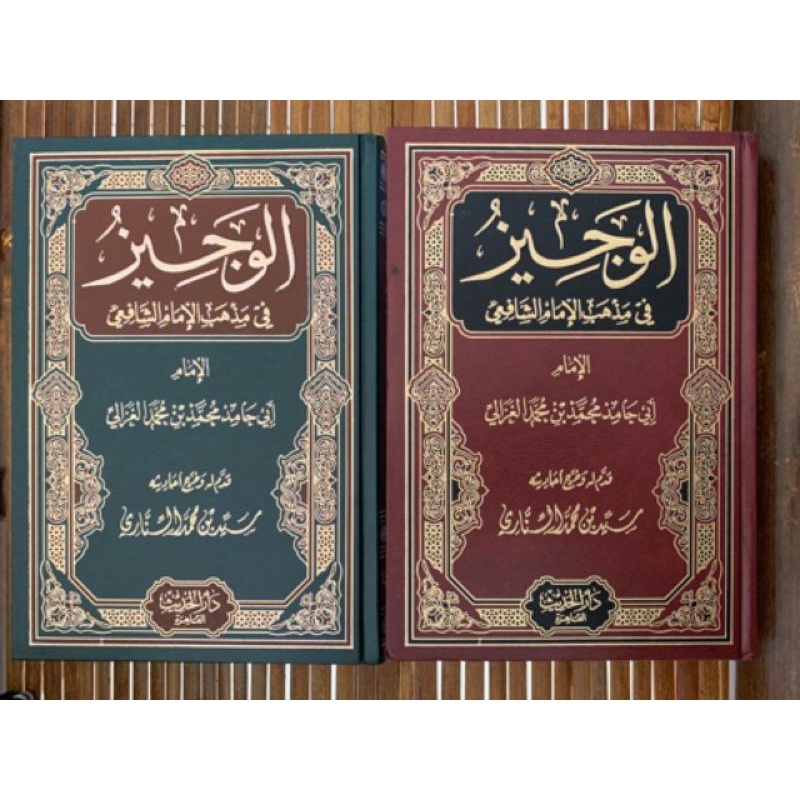 الوجيز
في مذهب الإمام الشافعي
الإمام
أبي حامد محمد بن محمد الغزالي
قدم له وخرج أحاديثه
سيد بن محمد السناري
دار الحديث
القاهرة
الوجيز
في مذهب الإمام الشافعي
الإمام
أبي حامد محمد بن محمد الغزالي
قدم له وخرج أحاديثه
سيد بن محمد السناري
دار الحديث
القاهرة